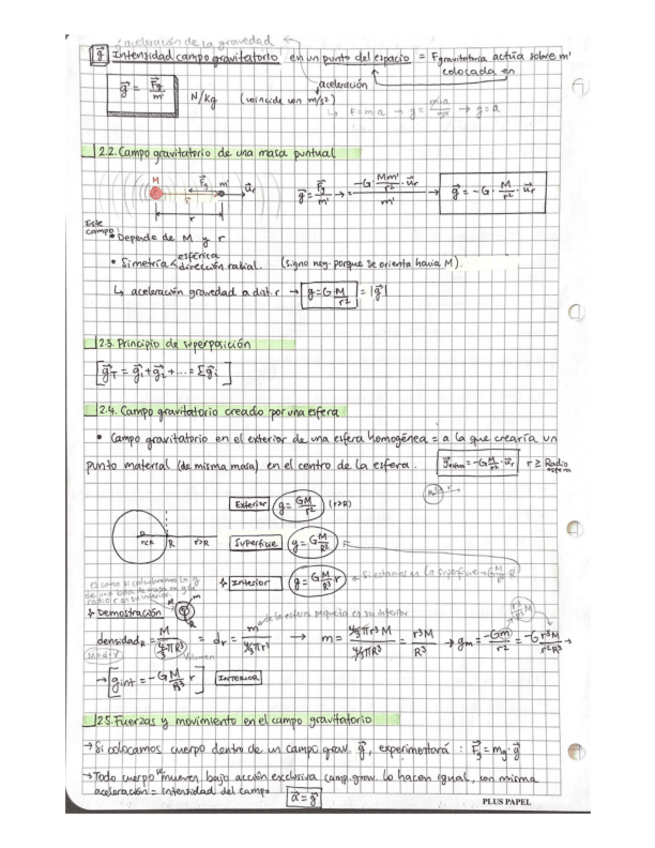 aceleración de la gravedad
g⃗ Intensidad campo gravitatorio en un punto del espacio = Fgravitatoria actúa sobre m'
colocada en
g⃗ = F⃗g / m' N/kg (coincide con m/s²)
aceleración
F = m·a → g = m·a / m → g = a
2.2. Campo gravitatorio de una masa puntual
M F⃗g m' u⃗r
r
g⃗ = F⃗g / m' → (-G · Mm'/r² · u⃗r) / m' → g⃗ = -G · M/r² · u⃗r
Este campo:
• Depende de M y r
• Simetría < esférica
dirección radial. (signo neg. porque se orienta hacia M).
↳ aceleración gravedad a dist. r → g = G M/r² = |g⃗|
2.3. Principio de superposición
[g⃗T = g⃗1 + g⃗2 + ... = Σg⃗i]
2.4. Campo gravitatorio creado por una esfera
• Campo gravitatorio en el exterior de una esfera homogénea = a la que crearía un
punto material (de misma masa) en el centro de la esfera. g⃗esfera = -G M/r² · u⃗r r ≥ Radio esfera
Exterior g = GM/r² (r>R)
r<R R r>R Superficie g = G M/R²
Interior g = G M/R³ r Si estamos en la superficie → G M/R³ R
es como si calculáramos la g
de una bola de masa m y de
radio r en su interior.
Demostración
m de la esfera pequeña en su interior
densidadR = M / (4/3πR³) = dr = m / (4/3πr³) → m = 4/3πr³M / 4/3πR³ = r³M / R³ → gm = -Gm / r² = -G r³M / r²R³ →
M=d·V Volumen
→ [gint = -G M/R³ r] INTERIOR
2.5. Fuerzas y movimiento en el campo gravitatorio
→ Si colocamos cuerpo dentro de un campo grav. g⃗, experimentará : F⃗g = mg · g⃗
→ Todo cuerpo se mueven bajo acción exclusiva camp. grav. lo hacen igual, con misma
aceleración = intensidad del campo a⃗ = g⃗
PLUS PAPEL